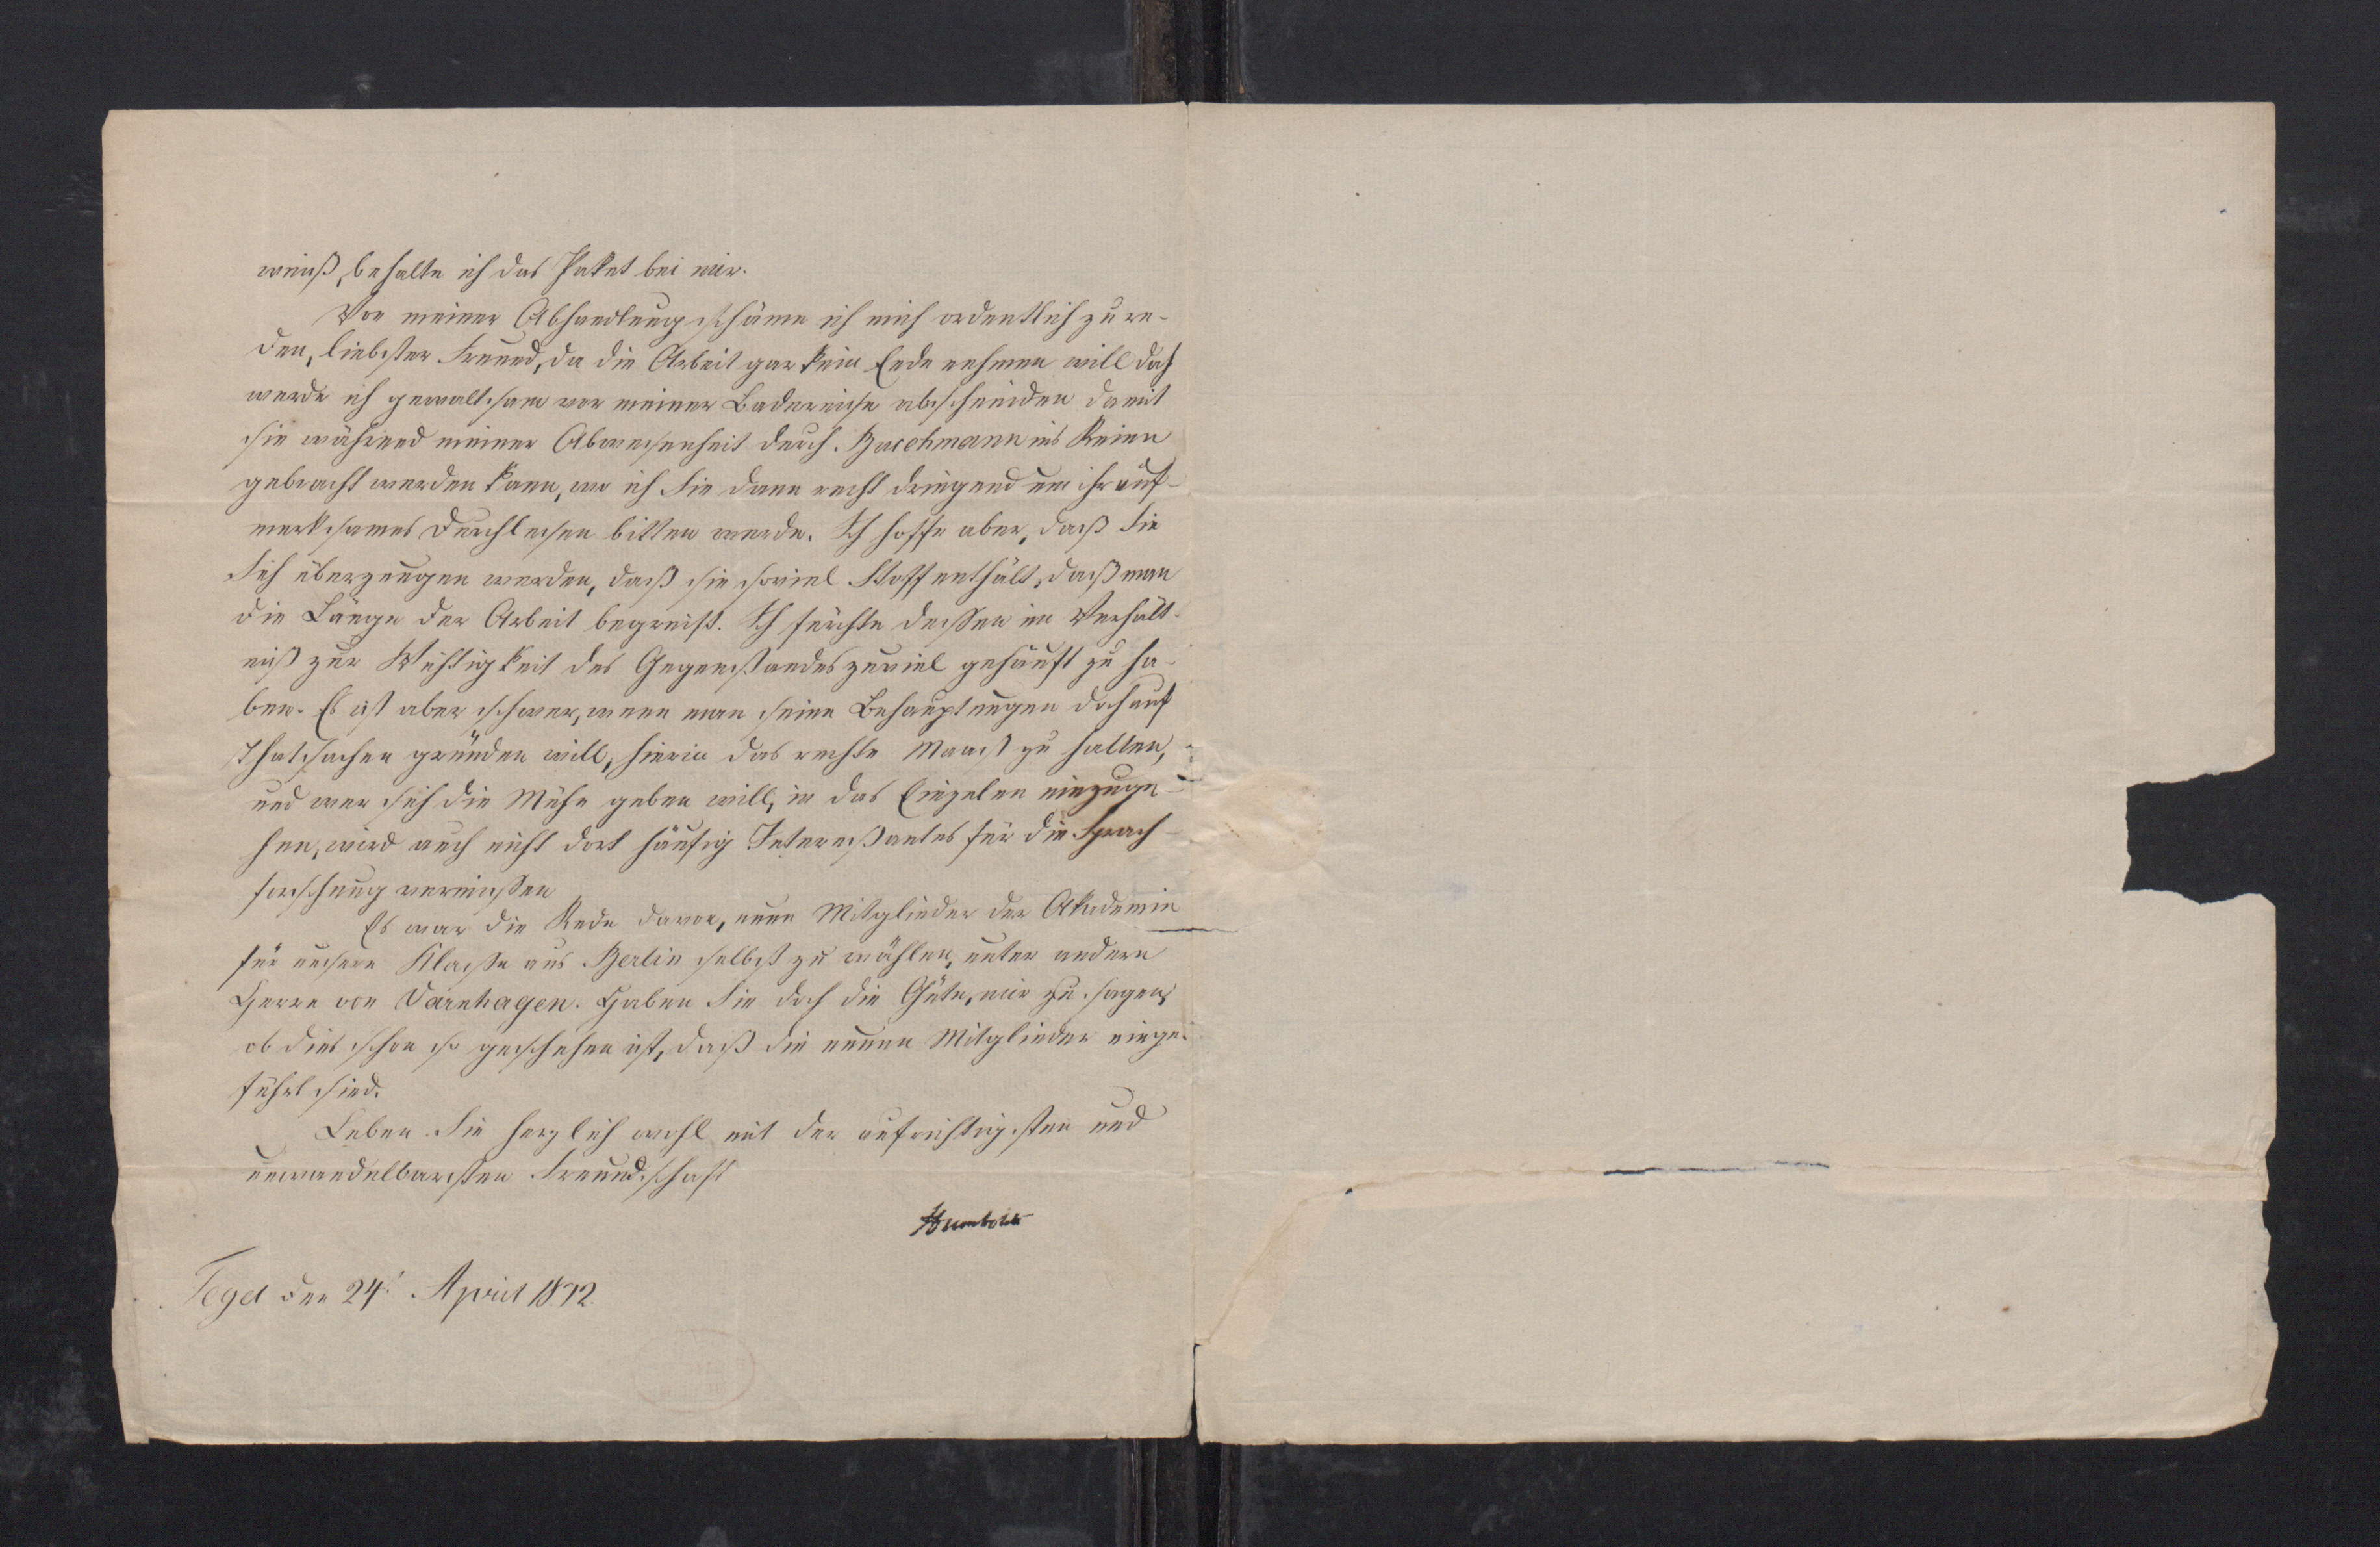 weiß, behalte ich das Paket bei mir.
Von meiner Abhandlung schäme ich mich ordentlich zu re-
den, liebster Freund, da die Arbeit gar kein Ende nehmen will doch
werde ich gewaltsam vor meiner Badereise abschneiden damit
sie während meiner Abwesenheit durch Buschmann ins Reine
gebracht werden kann, wo ich Sie dann recht dringend um ihr auf-
merksames Durchlesen bitten werde. Ich hoffe aber, daß Sie
Sich überzeugen werden, daß sie soviel Stoff enthält, daß man
die Länge der Arbeit begreift. Ich fürchte dessen im Verhält-
niß zur Wichtigkeit des Gegenstandes zuviel gehäuft zu ha-
ben. Es ist aber schwer, wenn man seine Behauptungen doch auf
Thatsachen gründen will, hierin das rechte Maaß zu halten,
und wer sich die Mühe geben will, in das Einzelne einzuge-
hen, wird auch nicht dort häufig Interessantes für die Sprach-
forschung vermissen
Es war die Rede davon, neue Mitglieder der Akademie
für unsere Klasse aus Berlin selbst zu wählen, unter andern
Herrn von Varnhagen. Haben Sie doch die Güte, mir zu sagen,
ob dies schon so geschehen ist, daß die neuen Mitglieder einge-
führt sind.
Leben Sie herzlich wohl mit der aufrichtigsten und
unwandelbarsten Freundschaft
Humboldt
Tegel den 24. April 1832.